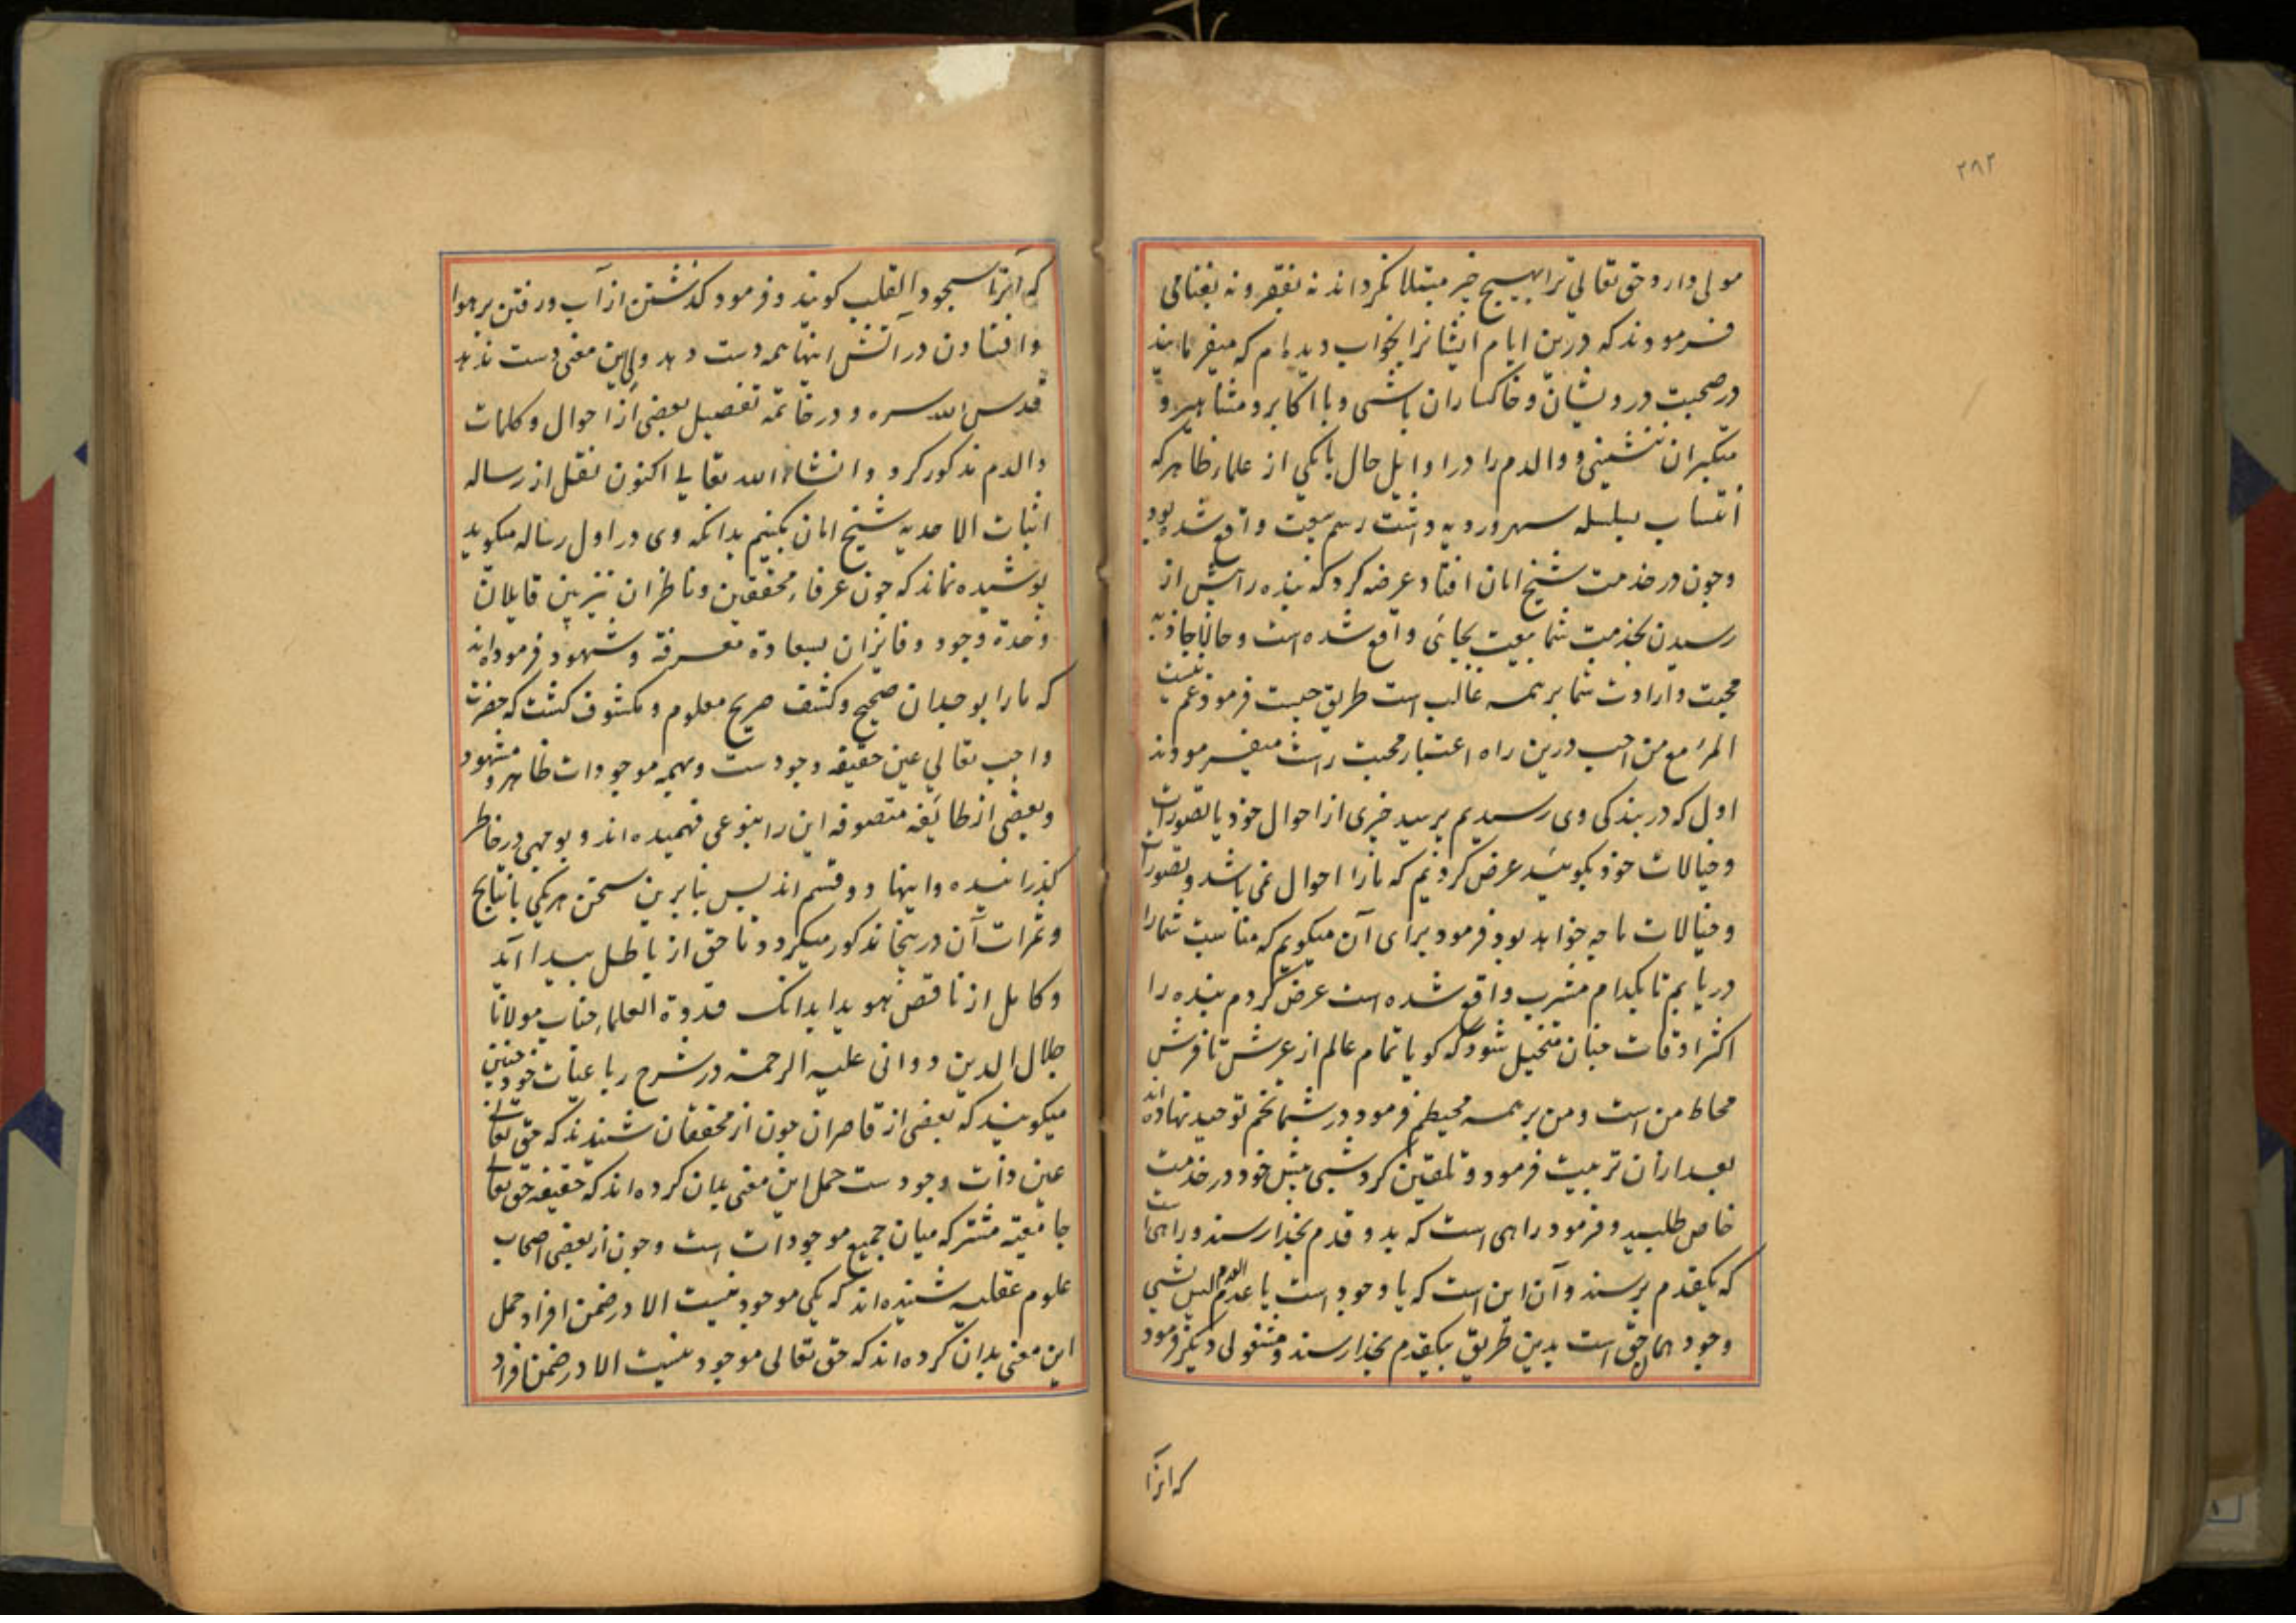 ۲۸۲
مولی دار و حق تعالی ترا بهیچ چیز مبتلا نکرداند نه بفقر و نه بغنا می
فرمودند که درین ایام ایشانرا بخواب دیده‌ام که میفرمایند
در صحبت درویشان و خاکساران باشی و با اکابر و مشاهیر و
متکبران ننشینی و والدم را در اوایل حال با یکی از علماء ظاهر که
انتساب بسلسله سهروردیه داشت رسم بیعت واقع شده بود
و چون در خدمت شیخ امان افتاد عرضه کرد که بنده را پیش از
رسیدن بخدمت شما بیعت بجائی واقع شده است و حالا جاذبه
محبت و ارادت شما بر همه غالب است طریق چیست فرمود غم نیست
المرء مع من احب درین راه اعتبار محبت راست میفرمودند
اول که در بندکی وی رسیدیم پرسید خبری از احوال خود یا تصورات
و خیالات خود بکوئید عرض کردیم که ما را احوال نمی باشد و تصورات
و خیالات ما چه خواهد بود فرمود برای آن میکویم که مناسبت شما را
دریابم تا بکدام مشرب واقع شده است عرض کردم بنده را
اکثر اوقات چنان متخیل شود که کویا تمام عالم از عرش تا فرش
محاط من است و من بر همه محیطم فرمود در شما تخم توحید نهاده اند
بعد ازان تربیت فرمود و تلقین کرد شبی پیش خود در خدمت
خاص طلبید و فرمود راهی است که بدو قدم بخدا رسند و راهی است
که بیکقدم برسند و آن این است که یا وجود است یا عدم العدم لیس بشی
وجود همان حق است بدین طریق بیکقدم بخدا رسند و مشغولی دیکر فرمود
که انرا
که آنرا سجود القلب کویند و فرمود کذشتن از آب و رفتن بر هوا
و افتادن در آتش اینها همه دست دهد ولی این معنی دست ندهد
قدس الله سره و در خاتمه تفصیل بعضی از احوال و کلمات
والدم مذکور کردد انشاء الله تعالی اکنون نقل از رساله
اثبات الاحدیه شیخ امان بکنیم بدانکه وی در اول رساله میکوید
پوشیده نماند که چون عرفاء محققین و ناظران تیزبین قایلان
وحدة وجود و فایزان بسعادة معرفة و شهود فرموده‌اند
که ما را بوجدان صحیح و کشف صریح معلوم و مکشوف کشت که حضرت
واجب تعالی عین حقیقه وجودست و همه موجودات ظاهر و مشهود
و بعضی از طائفه متصوفه این را بنوعی فهمیده اند و بوجهی در خاطر
کذرانیده و اینها دو قسم اند پس بنا برین سخن هر یکی با نتایج
و ثمرات آن درینجا مذکور میکردد تا حق از باطل پیدا آید
و کامل از ناقص هویدا بدانک قدوة العلما جناب مولانا
جلال الدین دوانی علیه الرحمة در شرح رباعیات خود چنین
میکویند که بعضی از قاصران چون از محققان شنیدند که حق تعالی
عین ذات وجودست حمل این معنی بدان کرده اند که حقیقه حق تعالی
جامعیة مشترکه میان جمیع موجودات است و چون از بعضی اصحاب
علوم عقلیه شنیده‌اند که یکی موجود نیست الا در ضمن افراد حمل
این معنی بدان کرده‌اند که حق تعالی موجود نیست الا در ضمن افراد